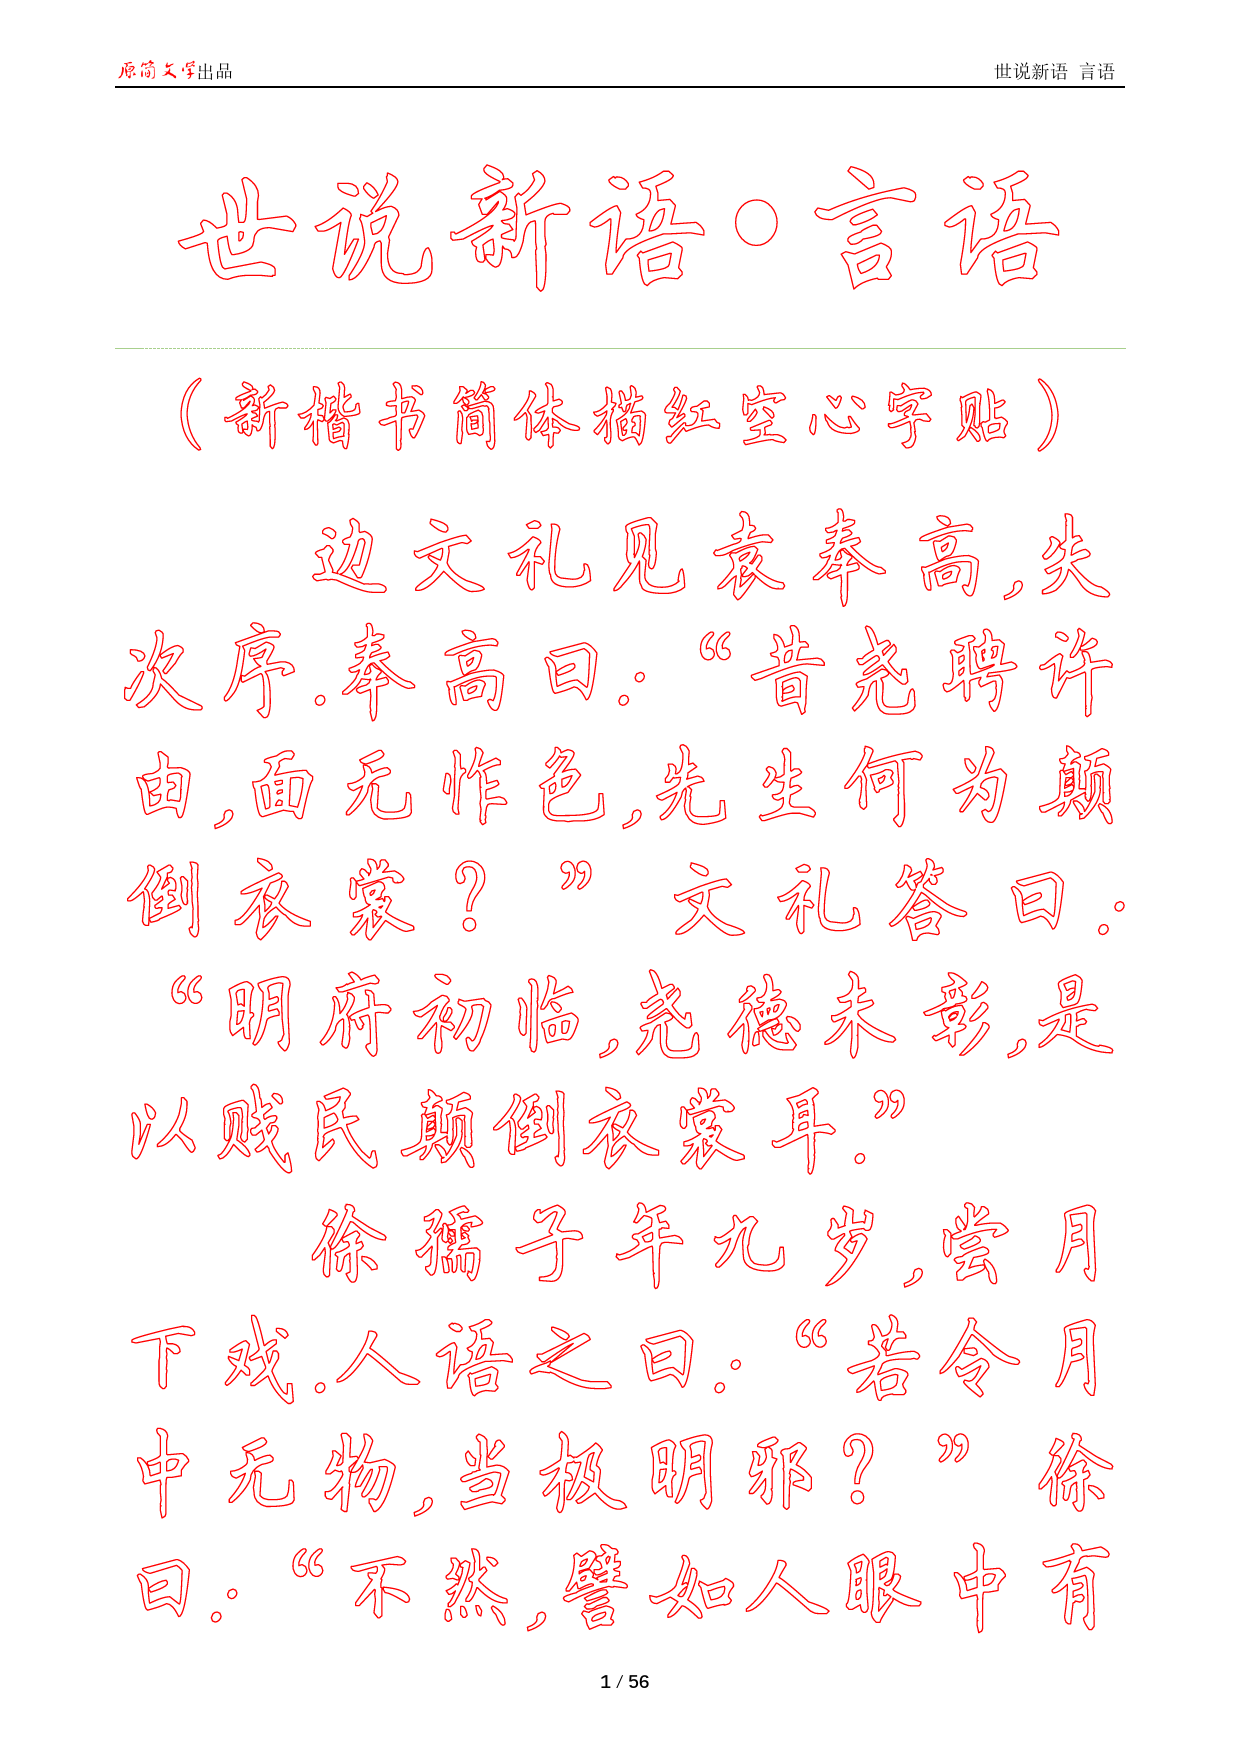 原简文学出品 世说新语 言语
世说新语·言语
（新楷书简体描红空心字贴）
边文礼见袁奉高,失
次序.奉高曰:“昔尧聘许
由,面无怍色,先生何为颠
倒衣裳?”文礼答曰:
“明府初临,尧德未彰,是
以贱民颠倒衣裳耳.”
徐孺子年九岁,尝月
下戏.人语之曰:“若令月
中无物,当极明邪?”徐
曰:“不然,譬如人眼中有
1 / 56